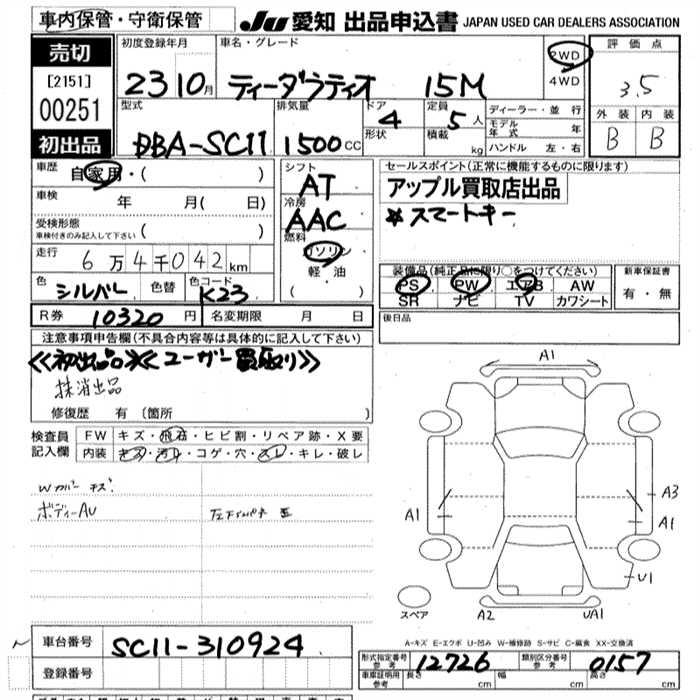 車内保管・守衛保管
JU 愛知 出品申込書 JAPAN USED CAR DEALERS ASSOCIATION
売切
[2151]
00251
初出品
初度登録年月
23 10月
車名・グレード
ティーダラティオ 15M
2WD
4WD
評価点
3.5
外装 内装
B B
型式
DBA-SC11
排気量
1500CC
ドア
4
形状
定員
5人
積載
kg
ディーラー・並行
モデル年式 年
ハンドル 左・右
車歴 自家用・( )
車検 年 月( 日)
受検形態
車検付きのみ記入して下さい ( )
走行 6万4千042km
色 シルバー 色替 色コード K23
シフト
AT
冷房
AAC
燃料
ガソリン
軽・油
( )
セールスポイント(正常に機能するものに限ります)
アップル買取店出品
*スマートキー
装備品(純正品に限り○をつけてください)
PS PW エアB AW
SR ナビ TV カワシート
新車保証書
有・無
R券 10320円 名変期限 月 日
後日品
注意事項申告欄(不具合内容等は具体的に記入して下さい)
≪初出品≫≪ユーザー買取り≫
抹消出品
修復歴 有 〔箇所 〕
検査員記入欄
FW キズ・飛石・ヒビ割・リペア跡・X要
内装 キズ・汚れ・コゲ・穴・スレ・キレ・破レ
Wカバー キズ
ボディーAU
A1
A1
A3
A1
U1
スペア
A2
UA1
A-キズ E-エクボ U-凹み W-補修跡 S-サビ C-腐食 XX-交換済
車台番号 SC11-310924
登録番号
形式指定番号
参考 12726
類別区分番号
参考 0157
車庫証明用
参考
長さ cm 幅 cm 高さ cm